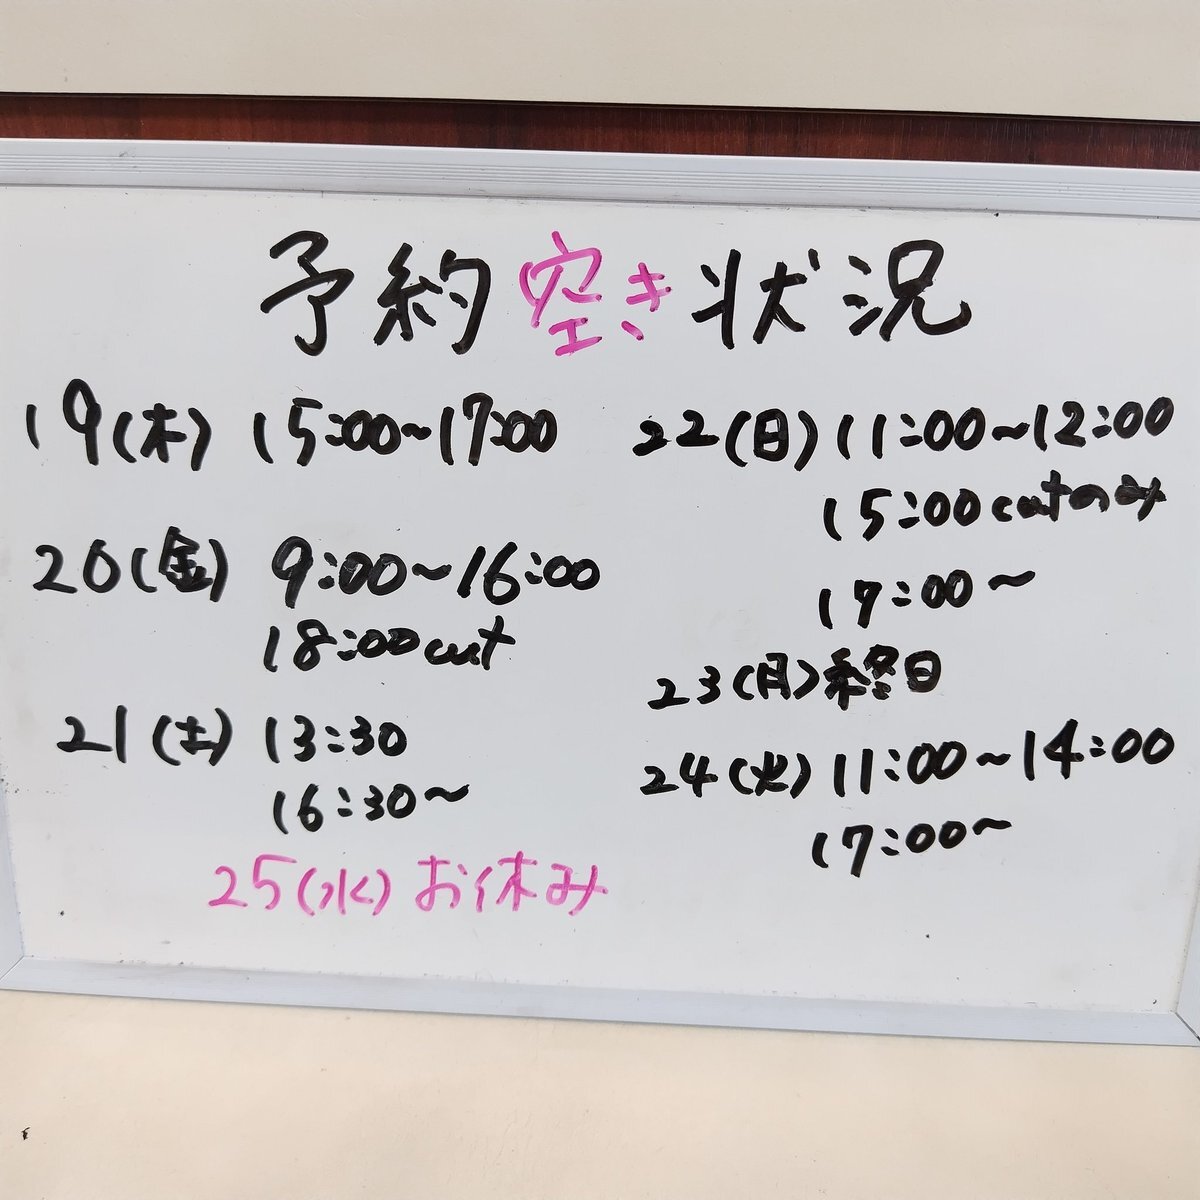 予約空き状況
19(木) 15:00~17:00
20(金) 9:00~16:00
18:00cut
21(土) 13:30
16:30~
25(水)お休み
22(日) 11:00~12:00
15:00cutのみ
17:00~
23(月)終日
24(火) 11:00~14:00
17:00~